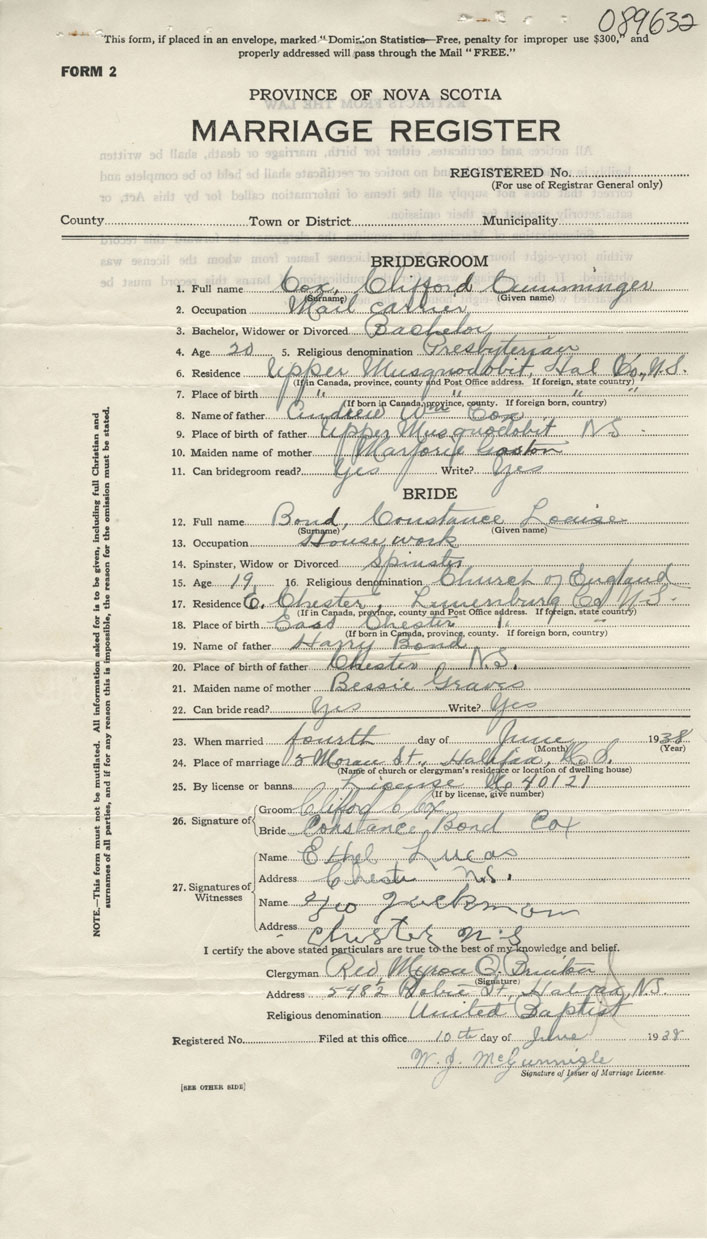 089632
This form, if placed in an envelope, marked "Dominion Statistics—Free, penalty for improper use $300," and
properly addressed will pass through the Mail "FREE."
FORM 2
PROVINCE OF NOVA SCOTIA
MARRIAGE REGISTER
REGISTERED No.
(For use of Registrar General only)
County Town or District Municipality
BRIDEGROOM
1. Full name Cox, Clifford Cumminger
(Surname) (Given name)
2. Occupation Mail carrier
3. Bachelor, Widower or Divorced Bachelor
4. Age 20 5. Religious denomination Presbyterian
6. Residence Upper Musquodobit, Hal Co., N.S.
(If in Canada, province, county and Post Office address. If foreign, state country)
7. Place of birth " " " "
(If born in Canada, province, county. If foreign born, country)
8. Name of father Andrew Wm Cox
9. Place of birth of father Upper Musquodobit NS
10. Maiden name of mother Marjorie Gaston
11. Can bridegroom read? Yes Write? Yes
BRIDE
12. Full name Bond, Constance Louise
(Surname) (Given name)
13. Occupation Housework
14. Spinster, Widow or Divorced Spinster
15. Age 19 16. Religious denomination Church of England
17. Residence E. Chester, Lunenburg Co N.S.
(If in Canada, province, county and Post Office address. If foreign, state country)
18. Place of birth East Chester " "
(If born in Canada, province, county. If foreign born, country)
19. Name of father Harry Bond
20. Place of birth of father Chester N.S.
21. Maiden name of mother Bessie Graves
22. Can bride read? Yes Write? Yes
23. When married fourth day of June 1938
(Month) (Year)
24. Place of marriage St., Halifax, N.S.
(Name of church or clergyman's residence or location of dwelling house)
25. By license or banns License No 40121
(If by license, give number)
26. Signature of Groom Cox
Bride Constance Bond Cox
27. Signatures of Witnesses
Name Ethel Lucas
Address Chester N.S.
Name Geo Jackman
Address Chester N.S
I certify the above stated particulars are true to the best of my knowledge and belief.
Clergyman Rev Myron O. Brinton
(Signature)
Address St, Halifax, N.S.
Religious denomination United Baptist
Registered No. Filed at this office 10th day of June 1938
W. J. McGunnigle
Signature of Issuer of Marriage License.
[SEE OTHER SIDE]
NOTE.—This form must not be mutilated. All information asked for is to be given, including full Christian and
surnames of all parties, and if for any reason this is impossible, the reason for the omission must be stated.